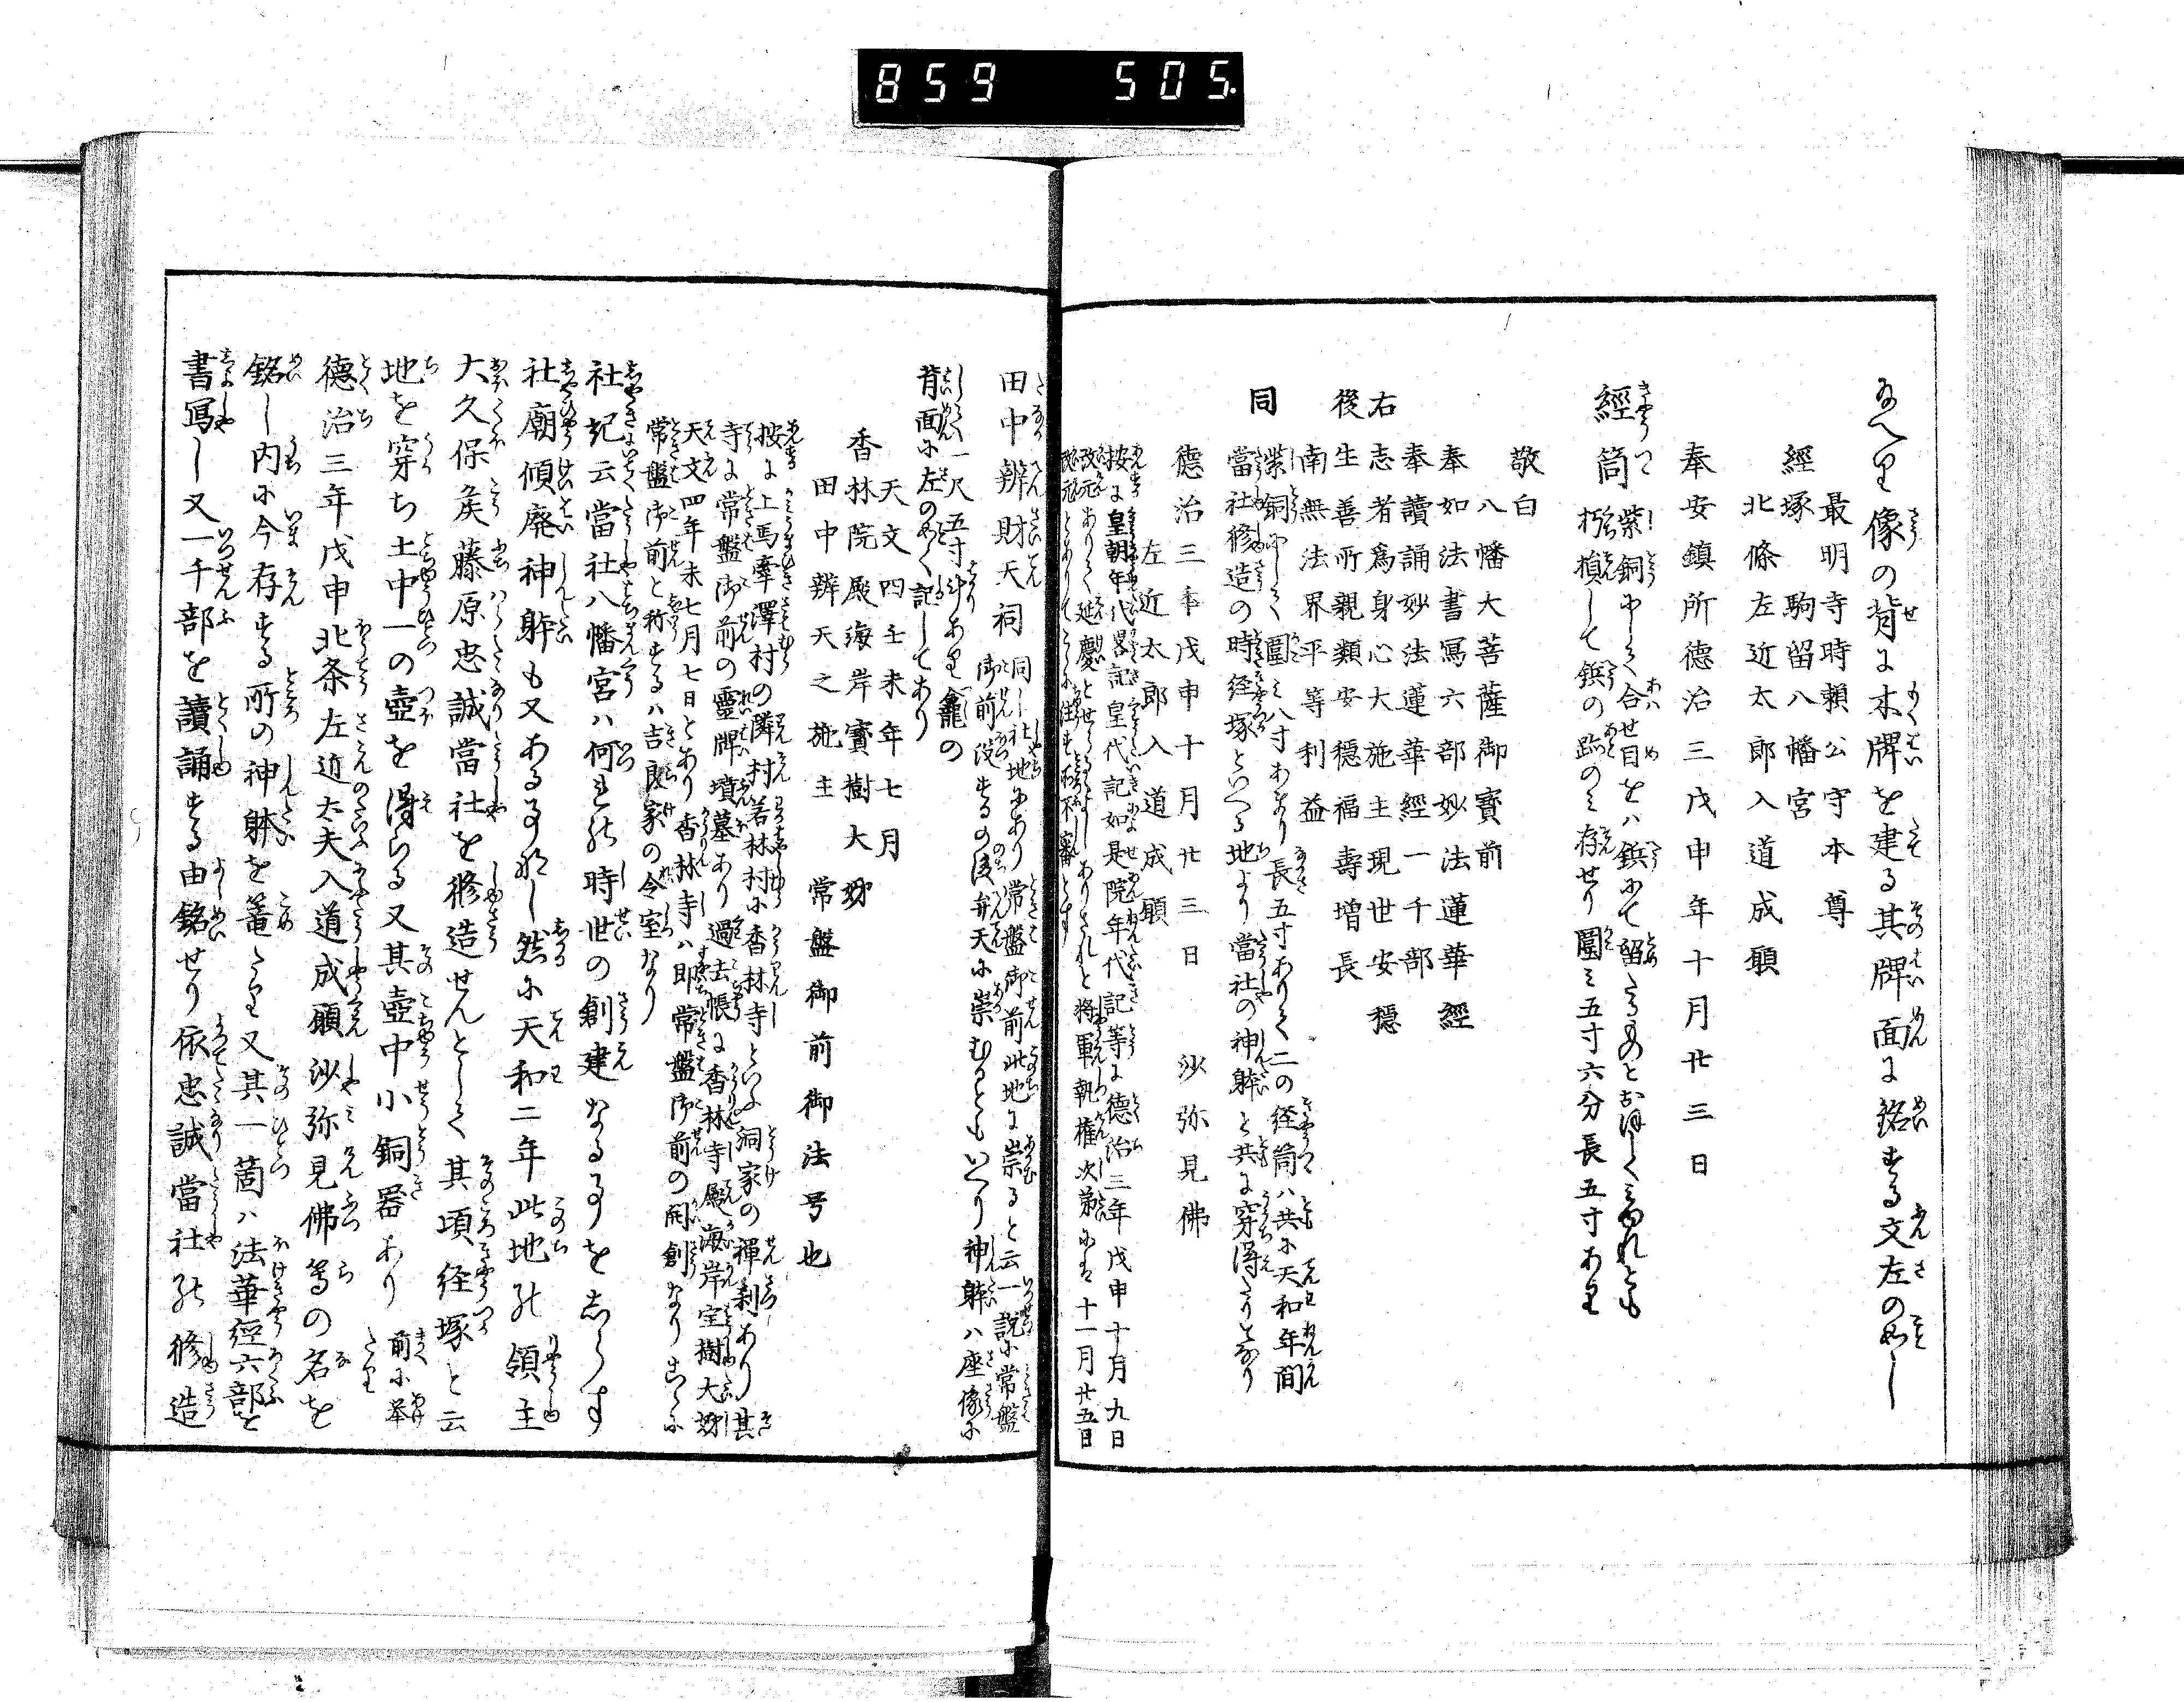 859 505.
なへり像の背に木牌を建る其牌面に銘する文左の如し
最明寺時頼公守本尊
經塚駒留八幡宮
北條左近太郎入道成願
奉安鎮所德治三戊申年十月廿三日
經筒 紫銅にして合せ目をハ鋲にて留たるものとおほしくみゆれとも
朽損して鋲の跡のミ存せり圍ミ五寸六分長五寸あり
敬白
八幡大菩薩御寳前
奉如法書寫六部妙法蓮華經
奉讀誦妙法蓮華經一千部
右志者爲身心大施主現世安穏
後生善所親類安穏福壽増長
南無法界平等利益
同 紫銅にして圍ミ八寸あまり長五寸ありて二の経筒ハ共に天和年間
當社修造の時経塚といへる地より當社の神躰と共に穿得たりとなり
德治三年戊申十月廿三日 沙弥見佛
左近太郎入道成願
按に皇朝年代畧記皇代記如是院年代記等に德治三年戊申十月九日
改元ありて延慶とせらるよしありされと將軍執権次第にハ十一月廿五日
改元とありて
田中辨財天祠 同し社地にあり常盤御前此地に崇ると云一説に常盤
御前没するの後弁天に崇むるともいへり神躰ハ座像に
して一尺五寸斗あり龕の
背面に左のことく記してあり
天文四壬未年七月
香林院殿海岸寳樹大姉
田中辨天之施主 常盤御前御法号也
按に上馬牽澤村の隣村若林村に香林寺といふ洞家の禪刹あり其
寺に常盤御前の靈牌墳墓あり過去帳に香林寺殿海岸宝樹大姉
天文四年未七月七日とあり香林寺ハ即常盤御前の開創なりこゝに
常盤御前と称するハ吉良家の令室なり
社記云當社八幡宮ハ何れの時世の創建なる事をしらす
社廟傾廃神躰も又ある事なし然に天和二年此地の領主
大久保矦藤原忠誠當社を修造せんとして其頃経塚と云
地を穿ち土中一の壺を得らる又其壺中小銅器あり 前に挙たり
德治三年戊申北条左近太夫入道成願沙弥見佛等の名を
銘し内に今存する所の神躰を篭たり又其一箇ハ法華經六部を
書寫し又一千部を讀誦する由銘せり依忠誠當社の修造